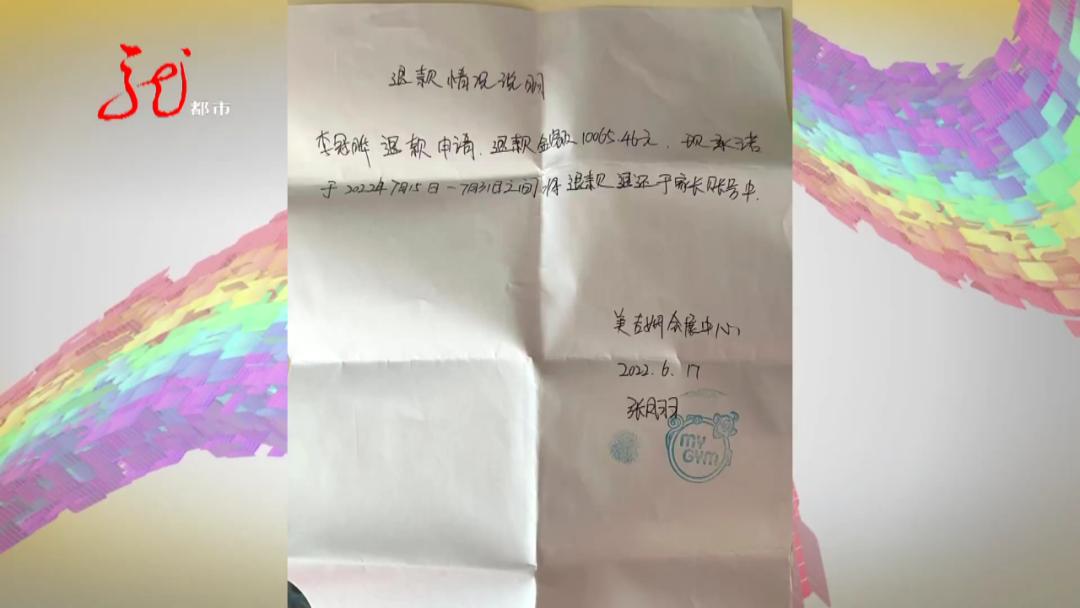 龙
都市
退款情况说明
李冠晔 退款申请、退款金额10065.46元,现承诺
于2022年7月15日-7月31日之间将退款退还于家长账号中.
美吉姆会展中心
2022.6.17
张月羽
MY
GYM